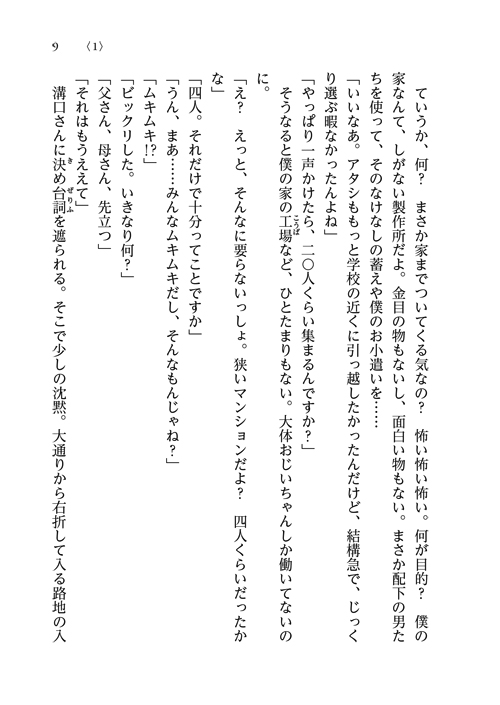 9　〈1〉
　ていうか、何？　まさか家までついてくる気なの？　怖い怖い怖い。何が目的？　僕の
家なんて、しがない製作所だよ。金目の物もないし、面白い物もない。まさか配下の男た
ちを使って、そのなけなしの蓄えや僕のお小遣いを……
「いいなあ。アタシももっと学校の近くに引っ越したかったんだけど、結構急で、じっく
り選ぶ暇なかったんよね」
「やっぱり一声かけたら、二〇人くらい集まるんですか？」
　そうなると僕の家の工場こうばなど、ひとたまりもない。大体おじいちゃんしか働いてないの
に。
「え？　えっと、そんなに要らないっしょ。狭いマンションだよ？　四人くらいだったか
な」
「四人。それだけで十分ってことですか」
「うん、まあ……みんなムキムキだし、そんなもんじゃね？」
「ムキムキ!?」
「ビックリした。いきなり何？」
「父さん、母さん、先立つ」
「それはもうええて」
　溝口さんに決きめ台詞ぜりふを遮られる。そこで少しの沈黙。大通りから右折して入る路地の入